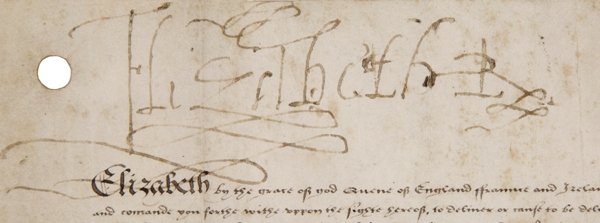 Elizabeth R
Elizabeth by the grace off god Quene off England ffraunce and Irelan
and comande you forthe withe vppon the sighte hereof, to deliuer or cause to be deli